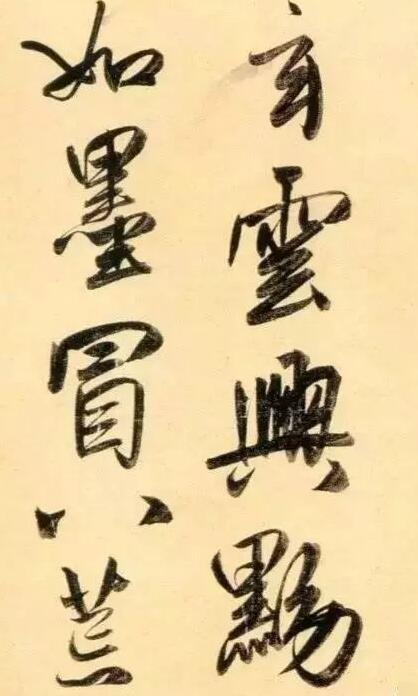 玄雲興黝
如墨冒八荒